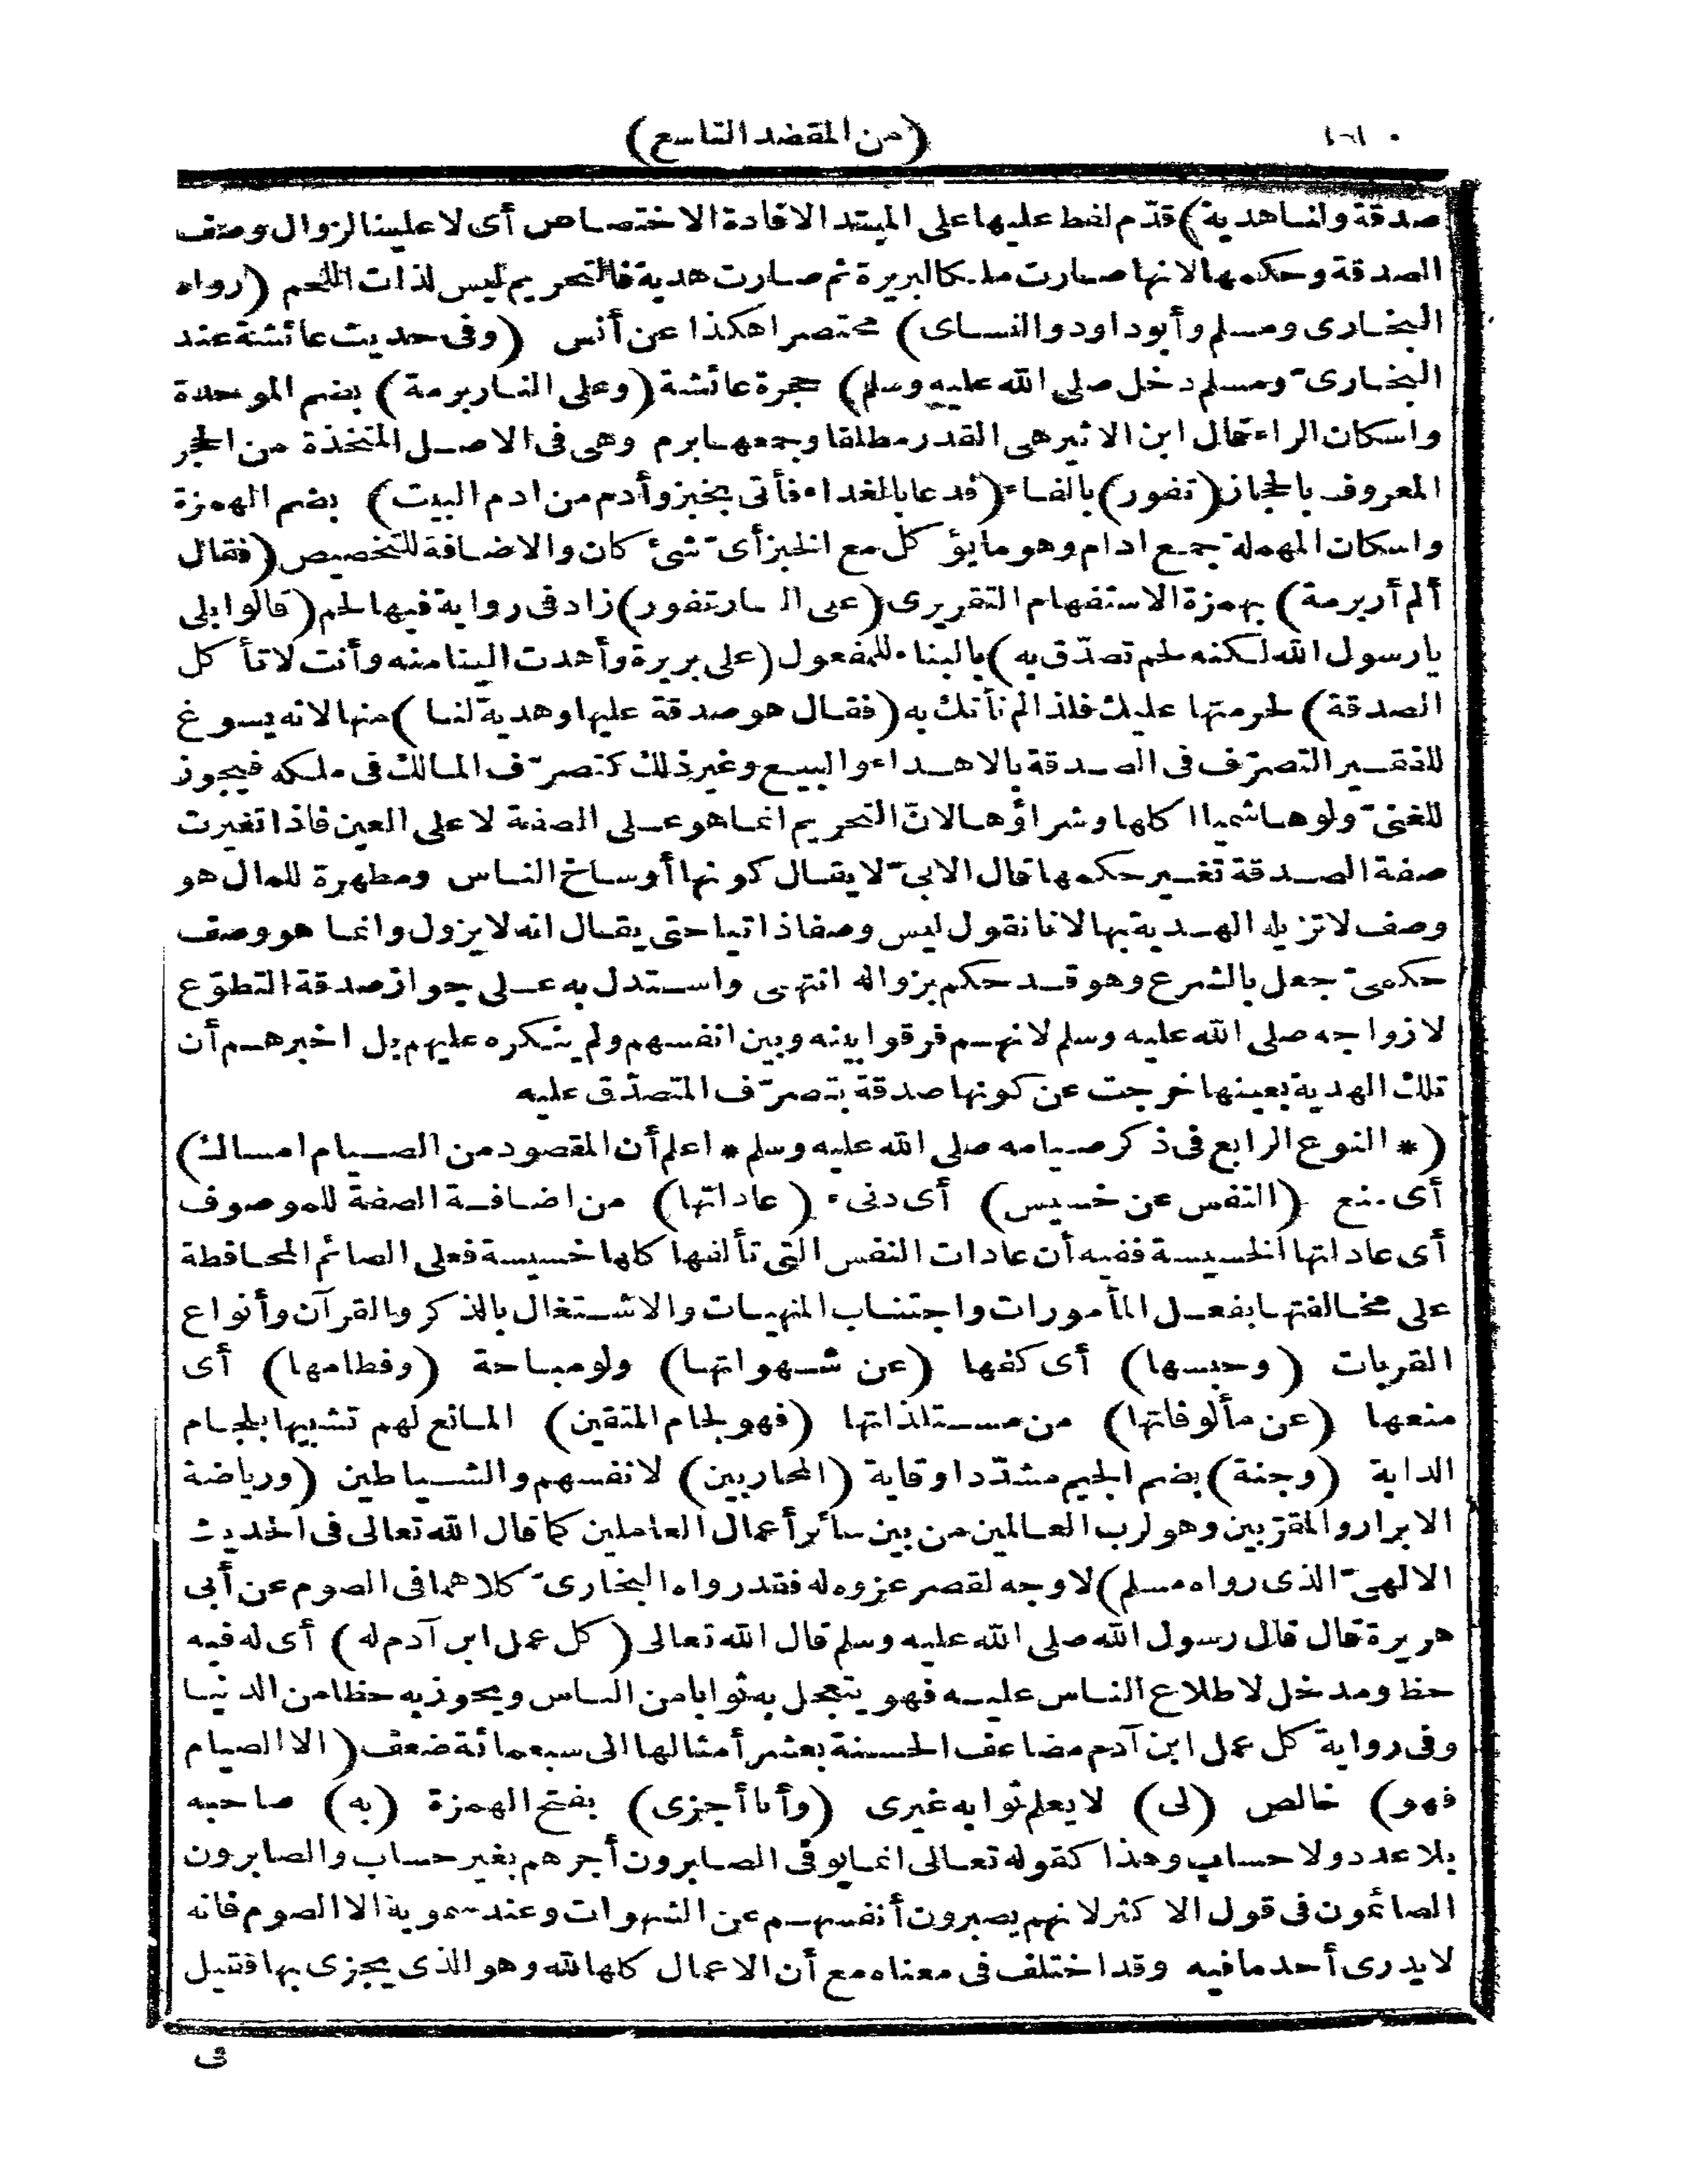 (من المقصد التاسع)
صدقة ولنا هدية) قدّم لفظ عليها على المبتدا لافادة الاختصاص أى لا علينا لزوال وصف
الصدقة وحكمها لانها صارت ملكا لبريرة ثم صارت هدية فالتحريم ليس لذات اللحم (رواه
البخارى ومسلم وأبو داود والنساى) مختصرا هكذا عن أنس (وفى حديث عائشة عند
البخارى ومسلم دخل صلى الله عليه وسلم) حجرة عائشة (وعلى النار برمة) بضم الموحدة
واسكان الراء قال ابن الاثير هى القدر مطلقا وجمعها برم وهى فى الاصل المتخذة من الحجر
المعروف بالحجاز (تفور) بالفاء (فدعا بالغداء فأتى بخبز وأدم من ادم البيت) بضم الهمزة
واسكان المهملة جمع ادام وهو ما يؤكل مع الخبز أى شئ كان والاضافة للتخصيص (فقال
ألم أر برمة) بهمزة الاستفهام التقريرى (على النار تفور) زاد فى رواية فيها لحم (قالوا بلى
يا رسول الله لكنه لحم تصدّق به) بالبناء للمفعول (على بريرة وأهدت الينا منه وأنت لا تأكل
الصدقة) لحرمتها عليك فلذا لم نأتك به (فقال هو صدقة عليها وهدية لنا) منها لانه يسوغ
للفقير التصرّف فى الصدقة بالاهداء والبيع وغير ذلك كتصرّف المالك فى ملكه فيجوز
للغنىّ ولو هاشميا اكلها وشراؤها لانّ التحريم انما هو على الصفة لا على العين فاذا تغيرت
صفة الصدقة تغير حكمها قال الابىّ لا يقال كونها أوساخ الناس ومطهرة للمال هو
وصف لا تزيله الهدية بها لانا نقول ليس وصفا ذاتيا حتى يقال انه لا يزول وانما هو وصف
حكمىّ جعل بالشرع وهو قد حكم بزواله انتهى واستدل به على جواز صدقة التطوّع
لازواجه صلى الله عليه وسلم لانهم فرقوا بينه وبين انفسهم ولم ينكره عليهم بل اخبرهم أن
تلك الهدية بعينها خرجت عن كونها صدقة بتصرّف المتصدّق عليه
(* النوع الرابع فى ذكر صيامه صلى الله عليه وسلم * اعلم أن المقصود من الصيام امساك)
أى منع (النفس عن خسيس) أى دنىء (عاداتها) من اضافة الصفة للموصوف
أى عاداتها الخسيسة ففيه أن عادات النفس التى تألفها كلها خسيسة فعلى الصائم المحافظة
على مخالفتها بفعل المأمورات واجتناب المنهيات والاشتغال بالذكر والقرآن وأنواع
القربات (وحبسها) أى كفها (عن شهواتها) ولو مباحة (وفطامها) أى
منعها (عن مألوفاتها) من مستلذاتها (فهو لجام المتقين) المانع لهم تشبيها بلجام
الدابة (وجنة) بضم الجيم مشدّدا وقاية (المحاربين) لانفسهم والشياطين (ورياضة
الابرار والمقرّبين وهو لرب العالمين من بين سائر أعمال العاملين كما قال الله تعالى فى الحديث
الالهىّ الذى رواه مسلم) لا وجه لقصر عزوه له فقد رواه البخارىّ كلاهما فى الصوم عن أبى
هريرة قال قال رسول الله صلى الله عليه وسلم قال الله تعالى (كل عمل ابن آدم له) أى له فيه
حظ ومدخل لاطلاع الناس عليه فهو يتعجل به ثوابا من الناس ويحوز به حظا من الدنيا
وفى رواية كل عمل ابن آدم مضاعف الحسنة بعشر أمثالها الى سبعمائة ضعف (الا الصيام
فهو) خالص (لى) لا يعلم ثوابه غيرى (وأنا أجزى) بفتح الهمزة (به) صاحبه
بلا عدد ولا حساب وهذا كقوله تعالى انما يوفى الصابرون أجرهم بغير حساب والصابرون
الصائمون فى قول الاكثر لانهم يصبرون أنفسهم عن الشهوات وعند سمويه الا الصوم فانه
لا يدرى أحد ما فيه وقد اختلف فى معناه مع أن الاعمال كلها لله وهو الذى يجزى بها فقيل
فى